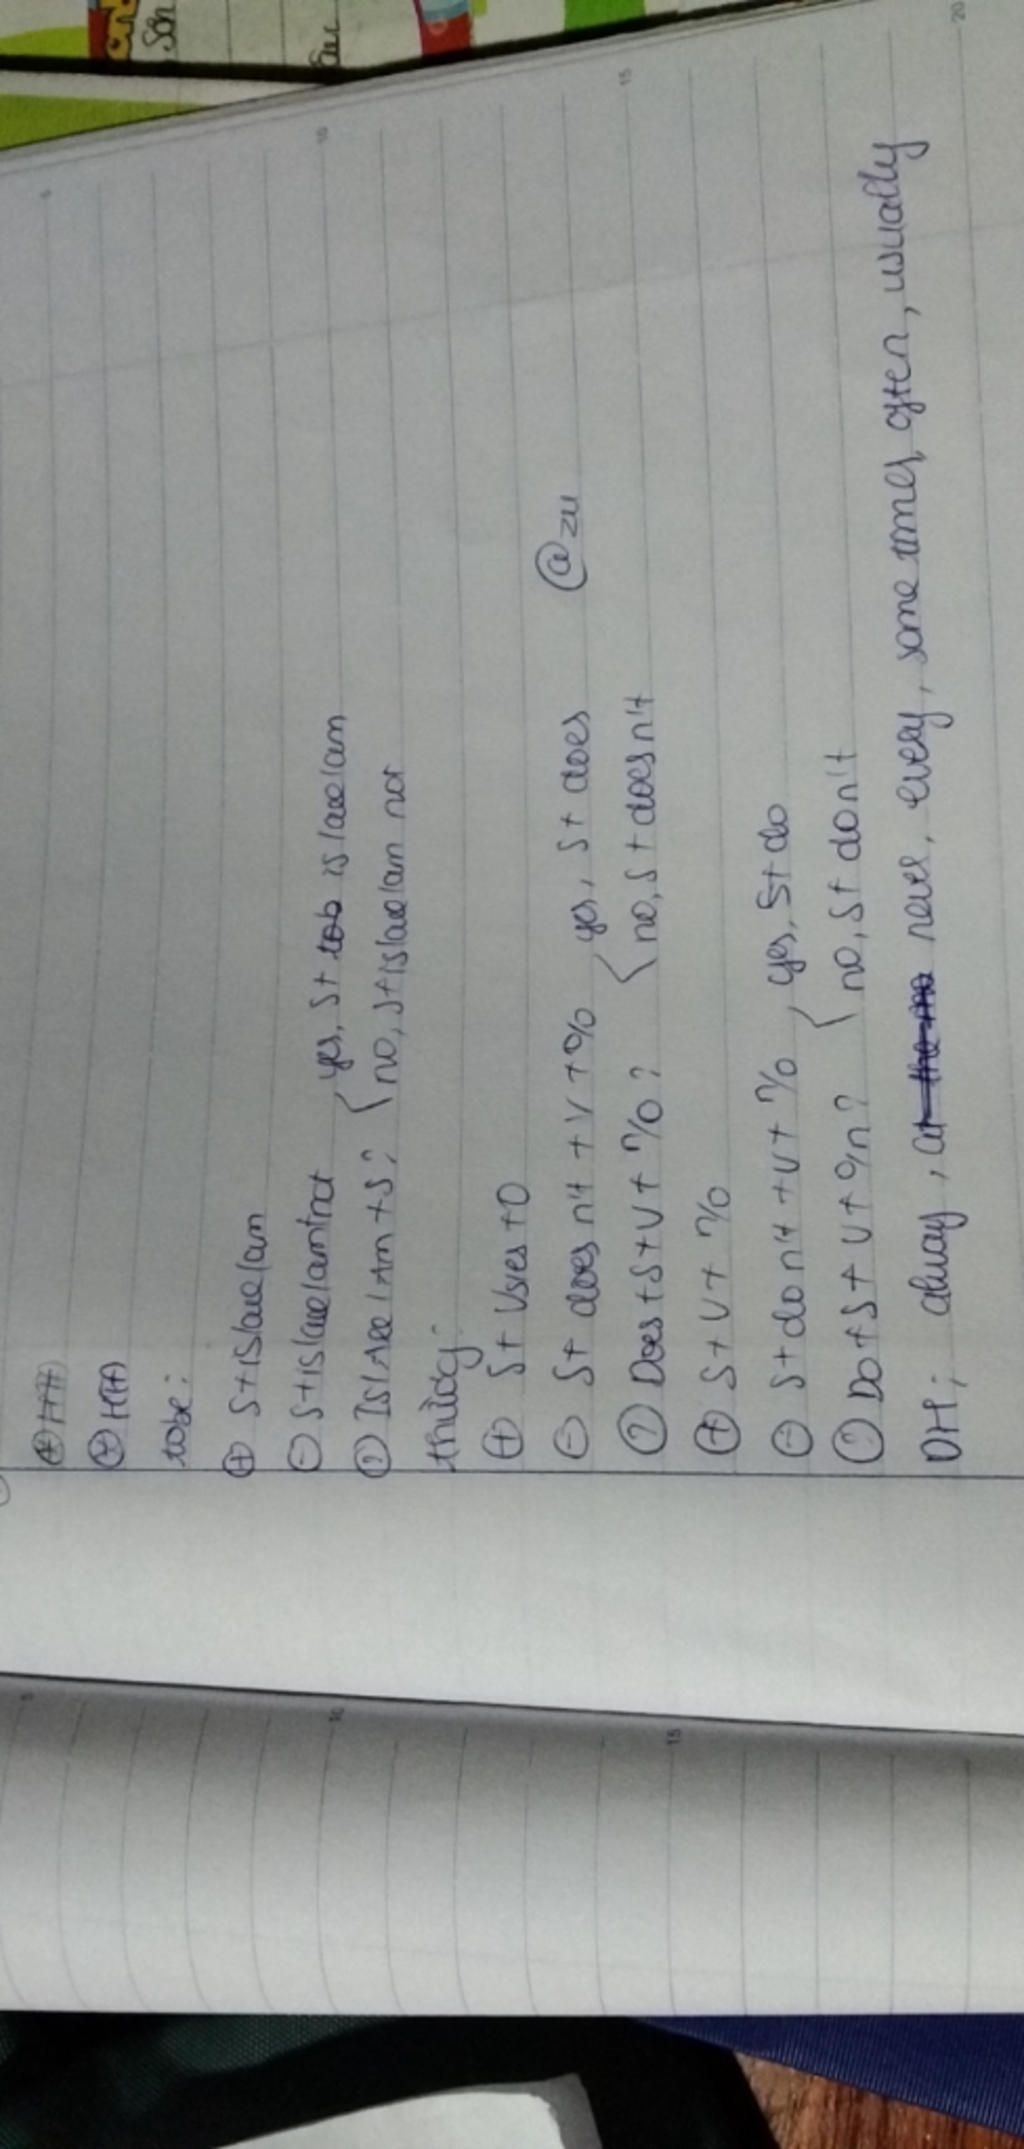 ⊕ HTH
tobe:
⊕ S+is/are/am
⊖ S+is/are/am+not
? Is/Are/Am+S? yes, S+ tob is/are/am
no, S+is/are/am not
thường:
⊕ S+ Vs/es+O
⊖ S+ does n't + V + %
? Does+S+V+ %? yes, S+ does
no, S+ doesn't
@zu
⊕ S+V+ %
⊖ S+don't+V+ %
? Do+S+V+%? yes, S+do
no, S+ don't
DH: alway, never, every, some times, often, usually
Sơn